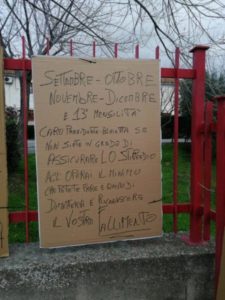 SETTEMBRE - OTTOBRE
NOVEMBRE - DICEMBRE
E 13ª MENSILITA'
CARO PRESIDENTE SE
NON SIETE IN GRADO DI
ASSICURARE LO STIPENDIO
AGLI OPERAI IL MINIMO
CHE POTETE FARE E'
DIMETTERVI E RICONOSCERE
IL VOSTRO FALLIMENTO